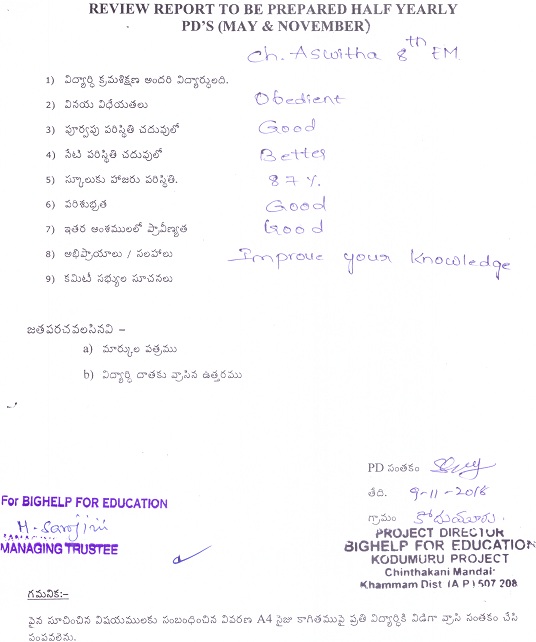 REVIEW REPORT TO BE PREPARED HALF YEARLY
PD'S (MAY & NOVEMBER)
Ch. Aswitha 8th EM
1) విద్యార్థి క్రమశిక్షణ అందరి విద్యార్థులది.
2) వినయ విధేయతలు Obedient
3) పూర్వపు పరిస్థితి చదువులో Good
4) నేటి పరిస్థితి చదువులో Better
5) స్కూలుకు హాజరు పరిస్థితి. 87%
6) పరిశుభ్రత Good
7) ఇతర అంశములలో ప్రావీణ్యత Good
8) అభిప్రాయాలు / సలహాలు Improve your knowledge
9) కమిటీ సభ్యుల సూచనలు
జతపరచవలసినవి –
a) మార్కుల పత్రము
b) విద్యార్థి దాతకు వ్రాసిన ఉత్తరము
PD సంతకం
తేది. 9-11-2018
గ్రామం కోదుమూరు.
For BIGHELP FOR EDUCATION
H. Sarojini
MANAGING TRUSTEE
PROJECT DIRECTOR
BIGHELP FOR EDUCATION
KODUMURU PROJECT
Chinthakani Mandal
Khammam Dist (A P) 507 208
గమనిక:–
పైన సూచించిన విషయములకు సంబంధించిన వివరణ A4 సైజు కాగితముపై ప్రతి విద్యార్థికి విడిగా వ్రాసి సంతకం చేసి
పంపవలెను.